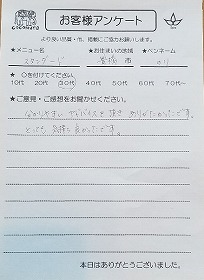 cocokara
お客様アンケート
より良い品質・市、掲載にご協力お願いします。
★メニュー名 ★お住まいの地域 ★ペンネーム
スタンダード 豊橋 市 のり
★ ○を付けてください。
10代 20代 30代 40代 50代 60代 70代〜
★ご意見・ご感想をお聞かせください。
わかりやすい アドバイスを 頂き ありがたかったです。
とっても 気持ち良かったです。
本日はありがとうございました。